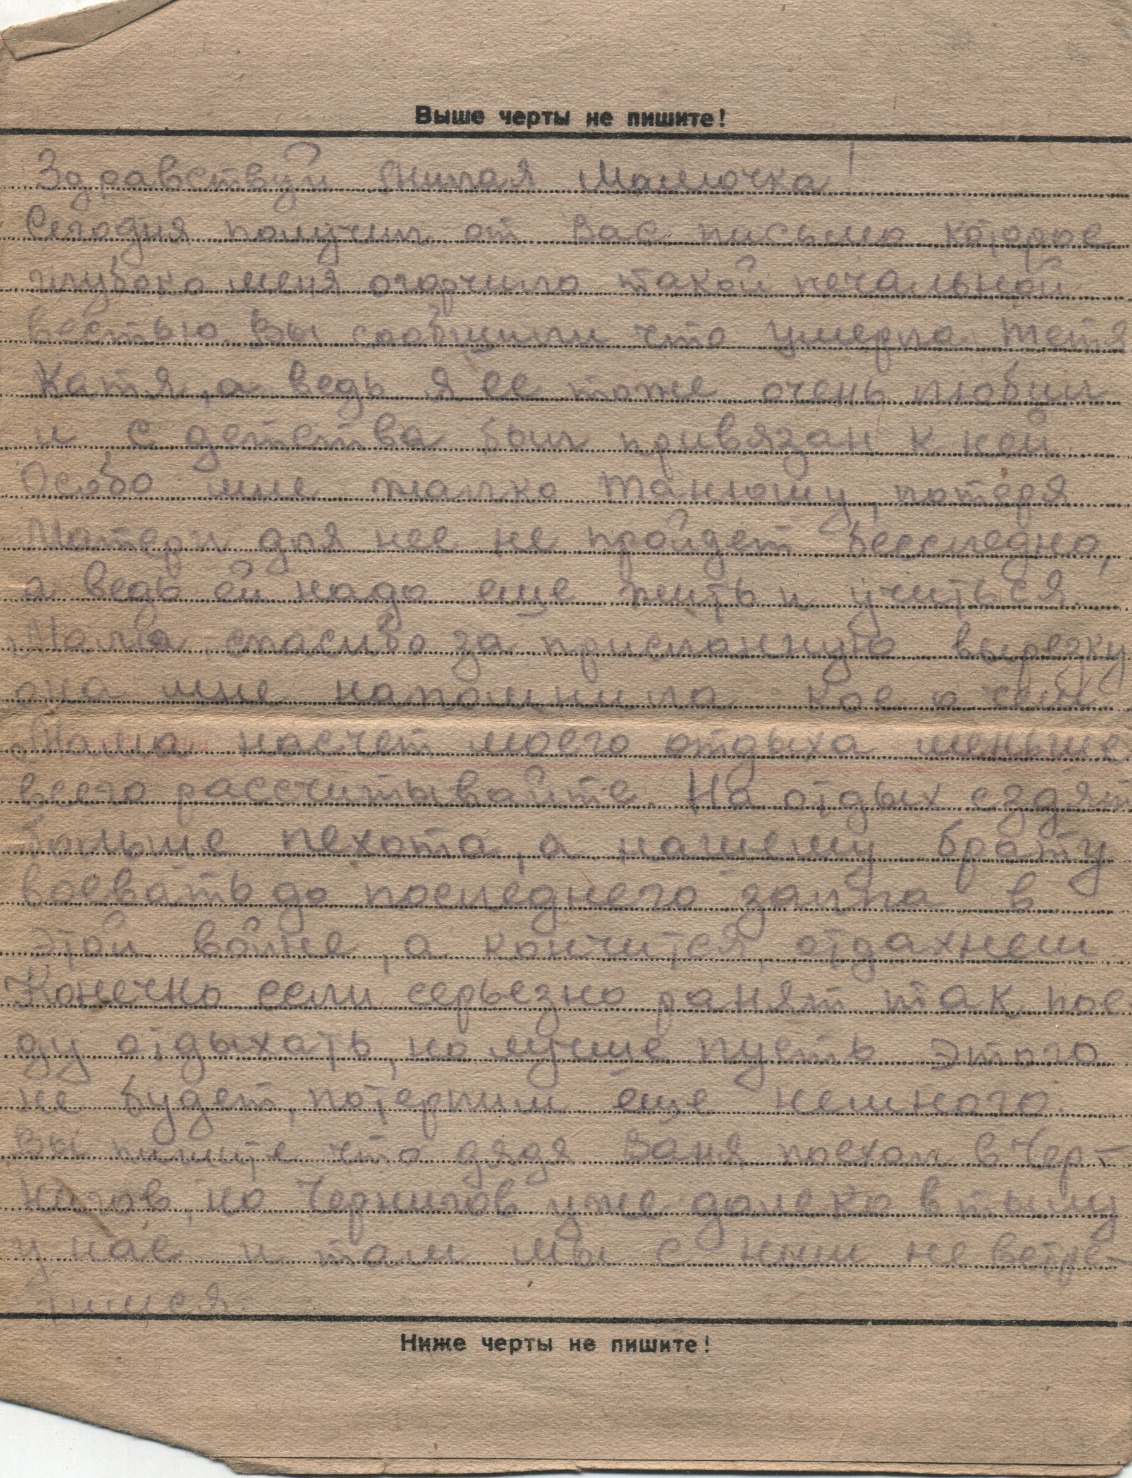 Выше черты не пишите!
Здравствуй Милая Мамочка!
Сегодня получил от Вас письмо которое
глубоко меня огорчило такой печальной
вестью. Вы сообщили что умерла тетя
Катя, а ведь я ее тоже очень любил
и с детства был привязан к ней
Особо мне жалко Танюшу, потеря
Матери для нее не пройдет бесследно,
а ведь ей надо еще жить и учиться.
Мама спасибо за присланную вырезку
она мне напомнила кое о чем.
Мама насчет моего отдыха меньше
всего рассчитывайте. На отдых ездят
больше пехота, а нашему брату
воевать до последнего залпа в
этой войне, а кончится, отдохнем
Конечно если серьезно ранят так пое-
ду отдыхать, но лучше пусть этого
не будет, потерпим еще немного.
Вы пишите что дядя Ваня поехал в Чер-
нигов, но Чернигов уже далеко в тылу
у нас и там мы с ним не встре-
тимся.
Ниже черты не пишите!